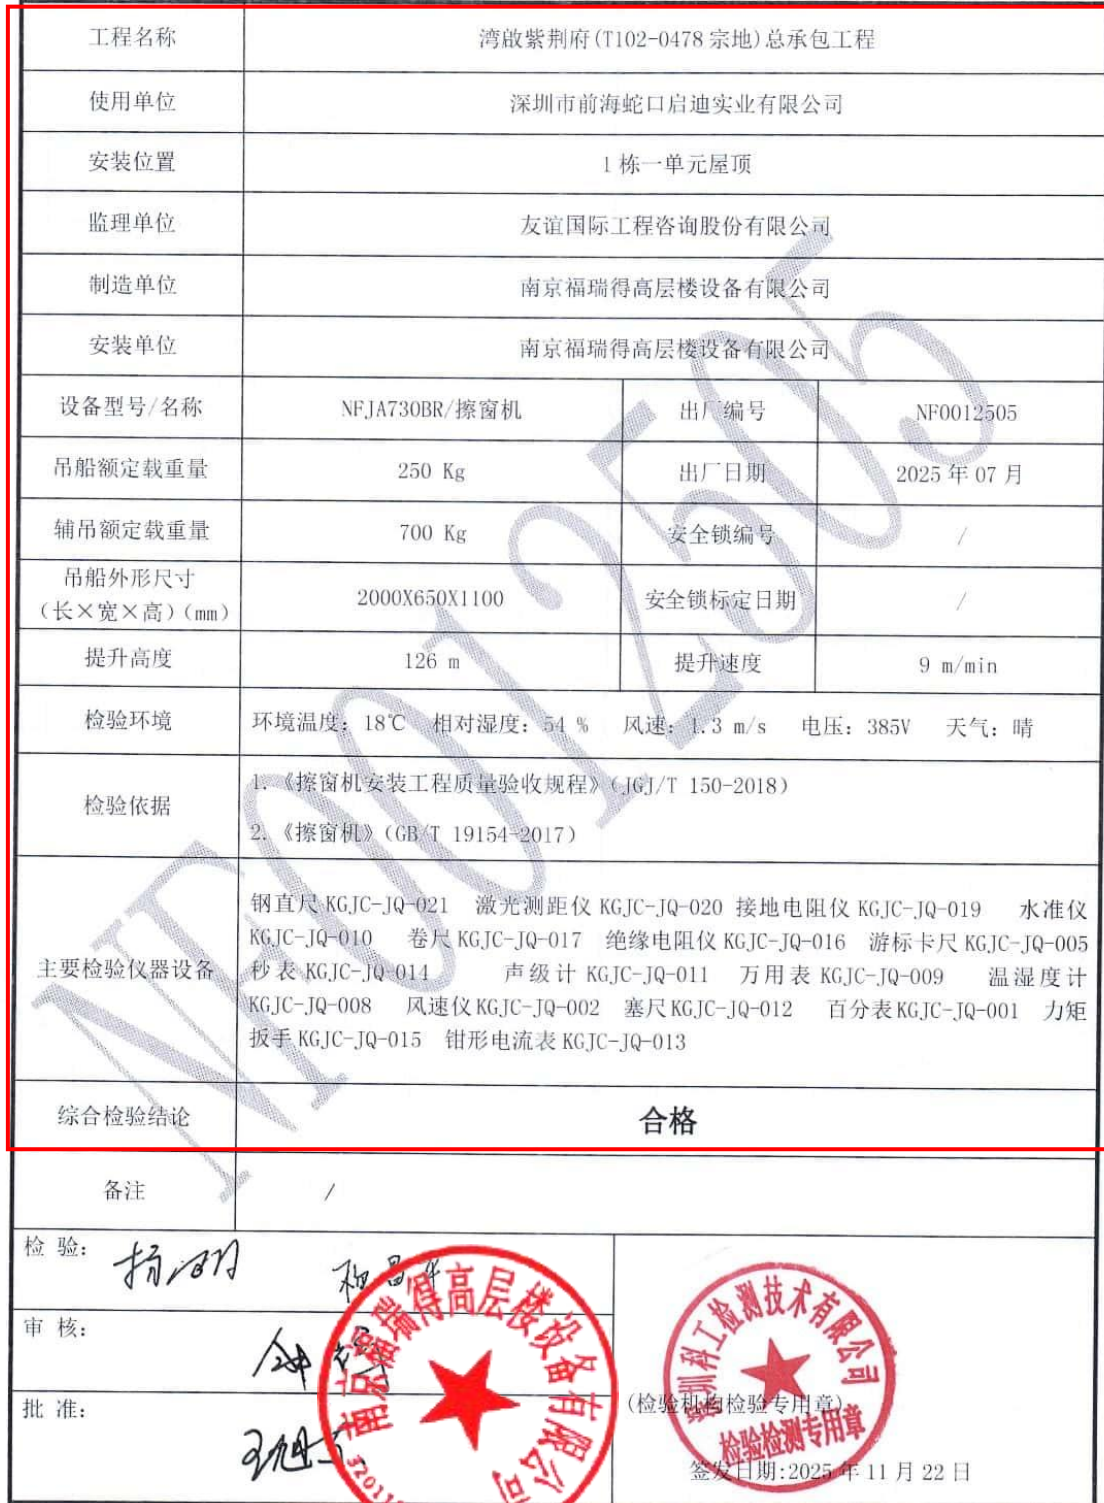 工程名称 湾啟紫荆府(T102-0478 宗地)总承包工程
使用单位 深圳市前海蛇口启迪实业有限公司
安装位置 1 栋一单元屋顶
监理单位 友谊国际工程咨询股份有限公司
制造单位 南京福瑞得高层楼设备有限公司
安装单位 南京福瑞得高层楼设备有限公司
设备型号/名称 NFJA730BR/擦窗机 出厂编号 NF0012505
吊船额定载重量 250 Kg 出厂日期 2025 年 07 月
辅吊额定载重量 700 Kg 安全锁编号 /
吊船外形尺寸
(长×宽×高)(mm) 2000X650X1100 安全锁标定日期 /
提升高度 126 m 提升速度 9 m/min
检验环境 环境温度: 18℃ 相对湿度: 54 % 风速: 1.3 m/s 电压: 385V 天气: 晴
检验依据
1.《擦窗机安装工程质量验收规程》(JGJ/T 150-2018)
2.《擦窗机》(GB/T 19154-2017)
主要检验仪器设备
钢直尺 KGJC-JQ-021 激光测距仪 KGJC-JQ-020 接地电阻仪 KGJC-JQ-019 水准仪
KGJC-JQ-010 卷尺 KGJC-JQ-017 绝缘电阻仪 KGJC-JQ-016 游标卡尺 KGJC-JQ-005
秒表 KGJC-JQ-014 声级计 KGJC-JQ-011 万用表 KGJC-JQ-009 温湿度计
KGJC-JQ-008 风速仪 KGJC-JQ-002 塞尺 KGJC-JQ-012 百分表 KGJC-JQ-001 力矩
扳手 KGJC-JQ-015 钳形电流表 KGJC-JQ-013
综合检验结论 合格
备注 /
检 验:
审 核:
批 准:
(检验机构检验专用章)
签发日期:2025 年 11 月 22 日
南京福瑞得高层楼设备有限公司
深圳科工检测技术有限公司
检验检测专用章
NF0012505